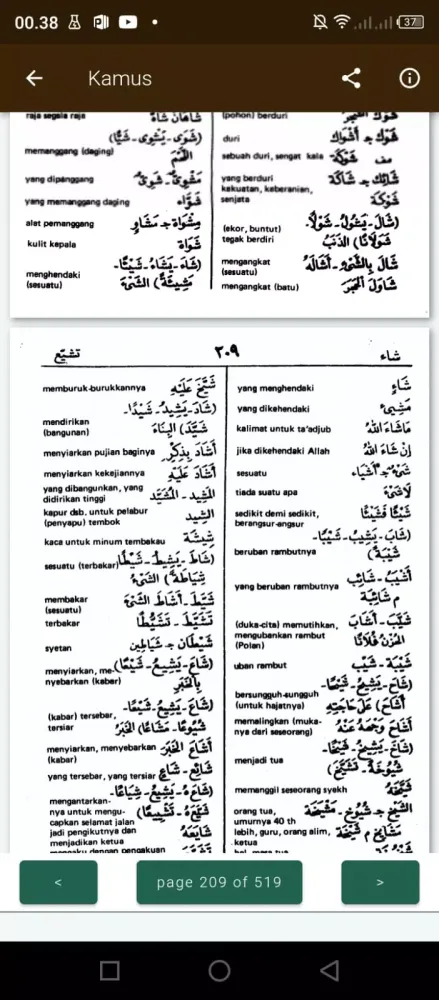 00.38
37
Kamus
raja segala raja شَاهَان شَاهْ
(شَوَى - يَشْوِى - شَيًّا)
memanggang (daging)
yang dipanggang مَشْوِىّ - شَوِىّ
yang memanggang daging شَوَّاء
alat pemanggang مِشْوَاة ج مَشَاوٍ
kulit kepala شَوَاة
(شَاءَ - يَشَاءُ - شَيْئًا -
menghendaki مَشِيْئَةً) الشَّىْءَ
(sesuatu)
(pohon) berduri
duri شَوْك ج أَشْوَاك
sebuah duri, sengat kala شَوْكَة
yang berduri شَائِك ج شَاكَة
kekuatan, keberanian, شَوْكَة
senjata
(شَالَ - يَشُوْلُ - شَوْلًا.
(ekor, buntut) شَوَلَانًا) الذَّنَبُ
tegak berdiri
mengangkat شَالَ بِالشَّىْءِ - أَشَالَهُ
(sesuatu)
mengangkat (batu) شَاوَلَ الْحَجَرَ
شاء ٢٠٩ تشيّع
yang menghendaki شَاءٍ
yang dikehendaki مَشِىْءٌ
kalimat untuk ta'adjub مَاشَاءَ اللهُ
jika dikehendaki Allah إِنْ شَاءَ اللهُ
sesuatu شَىْءٌ ج أَشْيَاء
tiada suatu apa لَاشَىْءَ
sedikit demi sedikit, شَيْئًا فَشَيْئًا
berangsur-angsur
(شَابَ - يَشِيْبُ - شَيْبًا -
beruban rambutnya شَيْبَةً)
yang beruban rambutnya أَشْيَبُ - شَائِب
م شَائِبَة
(duka-cita) memutihkan, شَيَّبَ - أَشَابَ
mengubankan rambut الْحُزْنُ فُلَانًا
(Polan)
uban rambut شَيْبَة - شَيْب
bersungguh-sungguh
(untuk hajatnya) أَشَاحَ) عَلَى حَاجَتِهِ
memalingkan (muka- أَشَاحَ وَجْهَهُ عَنْهُ
nya dari seseorang)
(شَاخَ - يَشِيْخُ - شَيْخًا -
menjadi tua شَيْخُوْخَةً - تَشَيَّخَ)
memanggil seseorang syekh شَيَّخَهُ
orang tua, الشَّيْخ ج شُيُوْخ - مَشْيَخَة
umurnya 40 th مَشَايِخ م شَيْخَة
lebih, guru, orang alim,
ketua
memburuk-burukkannya شَيَّخَ عَلَيْهِ
(شَادَ - يَشِيْدُ - شَيْدًا -
mendirikan شَيَّدَ) الْبِنَاءَ
(bangunan)
menyiarkan pujian baginya أَشَادَ بِذِكْرِهِ
menyiarkan kekejiannya أَشَادَ عَلَيْهِ
yang dibangunkan, yang المَشِيْد - المُشَيَّد
didirikan tinggi
kapur dsb. untuk pelabur الشِّيْد
(penyapu) tembok
kaca untuk minum tembakau شِيْشَة
(شَاطَ - يَشِيْطُ - شَيْطًا -
sesuatu (terbakar) شِيَاطَةً) الشَّىْءُ
membakar شَيَّطَ - أَشَاطَ الشَّىْءَ
(sesuatu)
terbakar تَشَيَّطَ - تَشَيُّطًا
syetan شَيْطَان ج شَيَاطِيْن
menyiarkan, me- (شَاعَ - يَشِيْعُ - شَيْعًا)
nyebarkan (kabar) بِالْخَبَرِ
(شَاعَ - يَشِيْعُ - شَيْعًا -
(kabar) tersebar, شُيُوْعًا - مَشَاعًا) الْخَبَرُ
tersiar
menyiarkan, menyebarkan أَشَاعَ الْخَبَرَ
(kabar)
yang tersebar, yang tersiar شَائِع - شَاعٍ
(شَاعَهُ - يَشِيْعُ - شِيَاعًا -
mengantarkan-
nya untuk mengu- شَيَّعَهُ - تَشْيِيْعًا)
capkan selamat jalan
jadi pengikutnya dan شَايَعَهُ
menjadikan ketua
mengaku dengan pengakuan
<
page 209 of 519
>